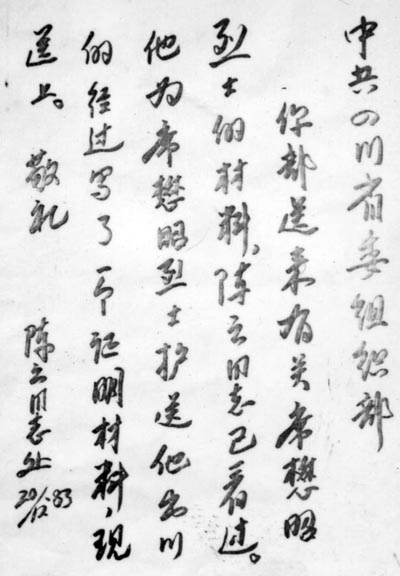 中共四川省委组织部
你部送来有关席懋昭
烈士的材料，陈云同志已看过。
他为席懋昭烈士护送他出川
的经过写了一个证明材料，现
送上。 敬礼
陈云同志处
20/12 83